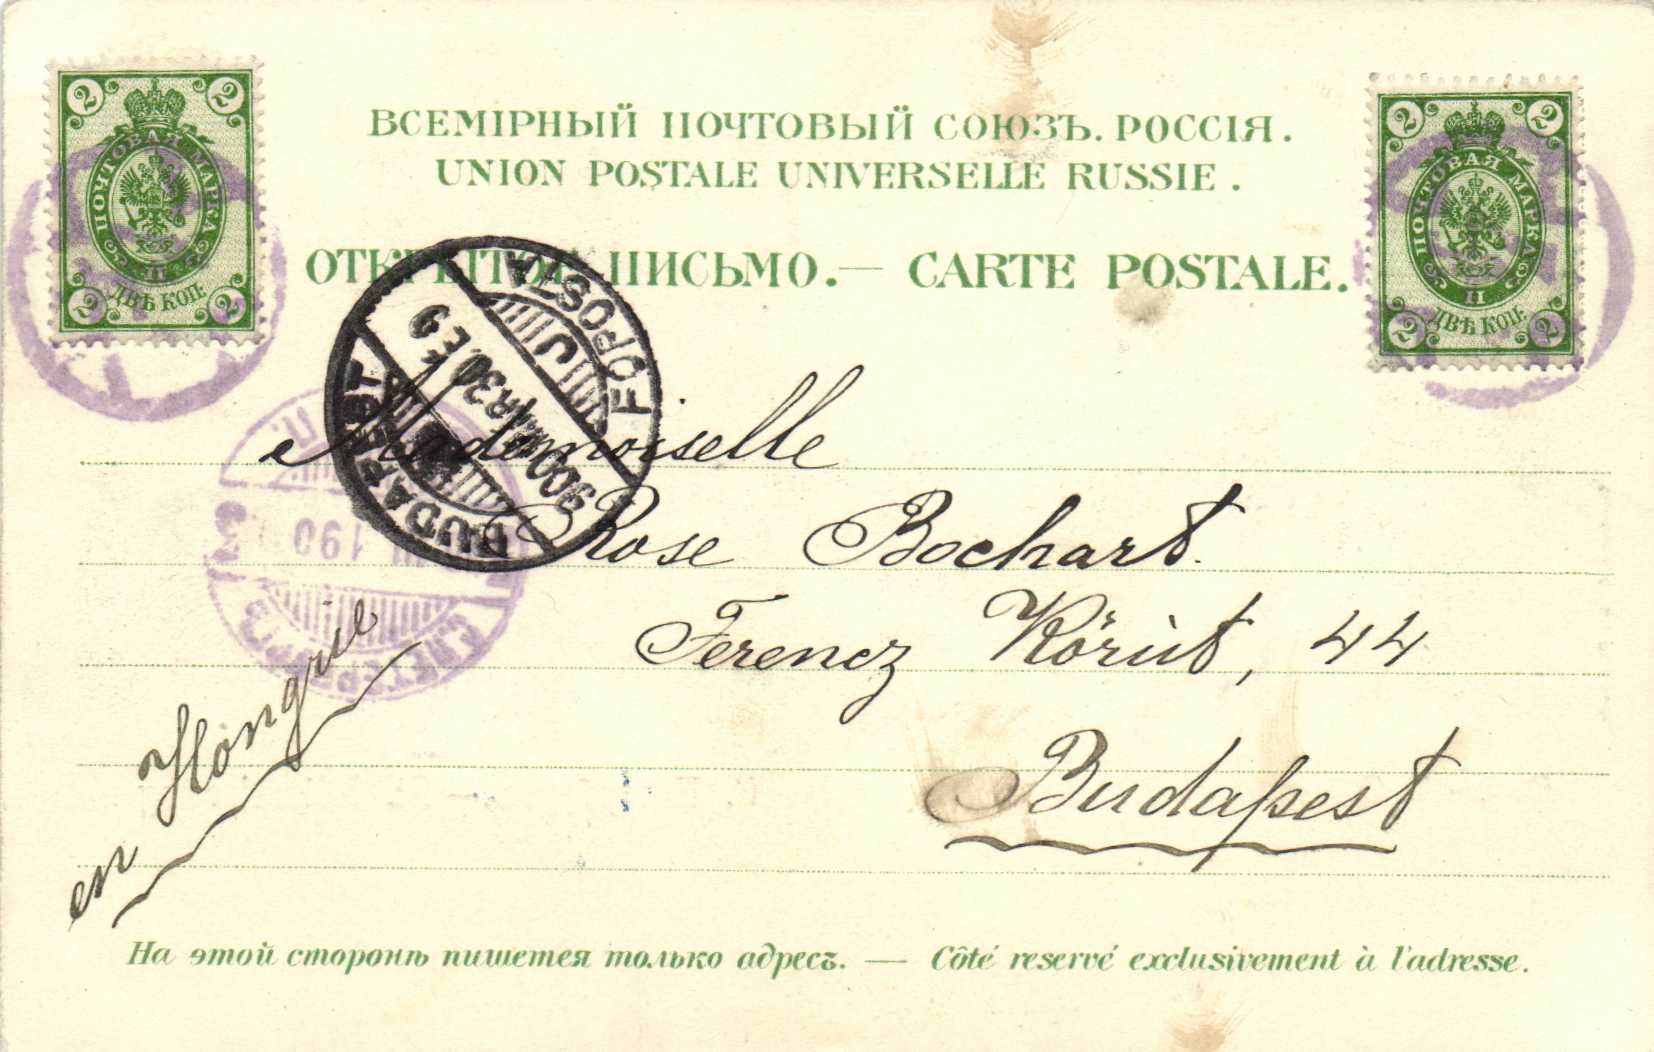 ВСЕМІРНЫЙ ПОЧТОВЫЙ СОЮЗЪ. РОССІЯ.
UNION POSTALE UNIVERSELLE RUSSIE.
ОТКРЫТОЕ ПИСЬМО. — CARTE POSTALE.
2 2
ПОЧТОВАЯ МАРКА
ДВѢ КОП.
2 2
2 2
ПОЧТОВАЯ МАРКА
ДВѢ КОП.
2 2
BUDAPEST
FŐPOSTA
900 MÁR 30 É 9
J
190
Mademoiselle
Rose Bochart.
Ferencz Körút, 44
Budapest
en Hongrie
На этой сторонѣ пишется только адресъ. — Côté reservé exclusivement à l'adresse.